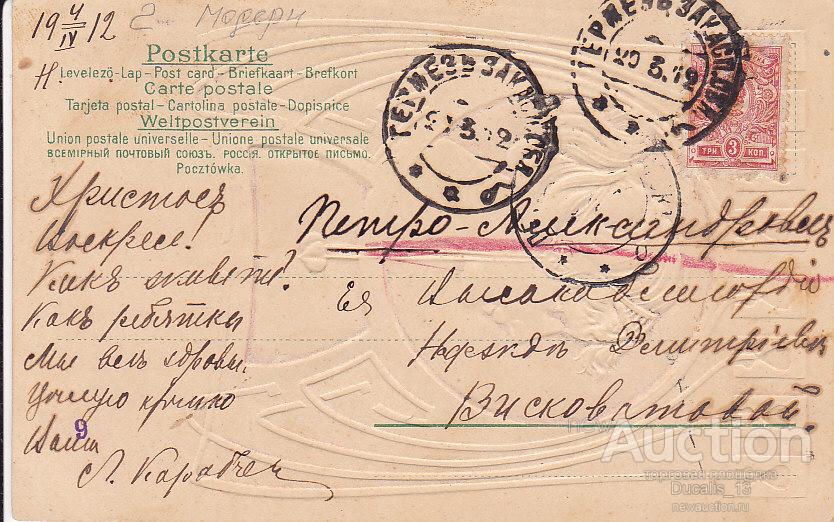 19 4/IV 12
2 - модерн
Н.
Postkarte
Levelező-Lap – Post card – Briefkaart – Brefkort
Carte postale
Tarjeta postal – Cartolina postale – Dopisnice
Weltpostverein
Union postale universelle – Unione postale universale
ВСЕМІРНЫЙ ПОЧТОВЫЙ СОЮЗЪ. РОССІЯ. ОТКРЫТОЕ ПИСЬМО.
Pocztówka.
ТЕРМЕЗЪ ЗАКАСП. ОБЛ.
ТЕРМЕЗЪ ЗАКАСП. ОБЛ.
ТРИ 3 КОП
Христосъ
Воскресе!
Какъ живете?
Какъ ребятки
Мы всѣ здоровы.
Цѣлую крѣпко
Ваша
9
Л.
Петро-Александровскъ
Ея Высокоблагородію
Надеждѣ Дмитріевнѣ
Висковатовой
new Auction
торговая площадка
Ducalis_18
newauction.ru